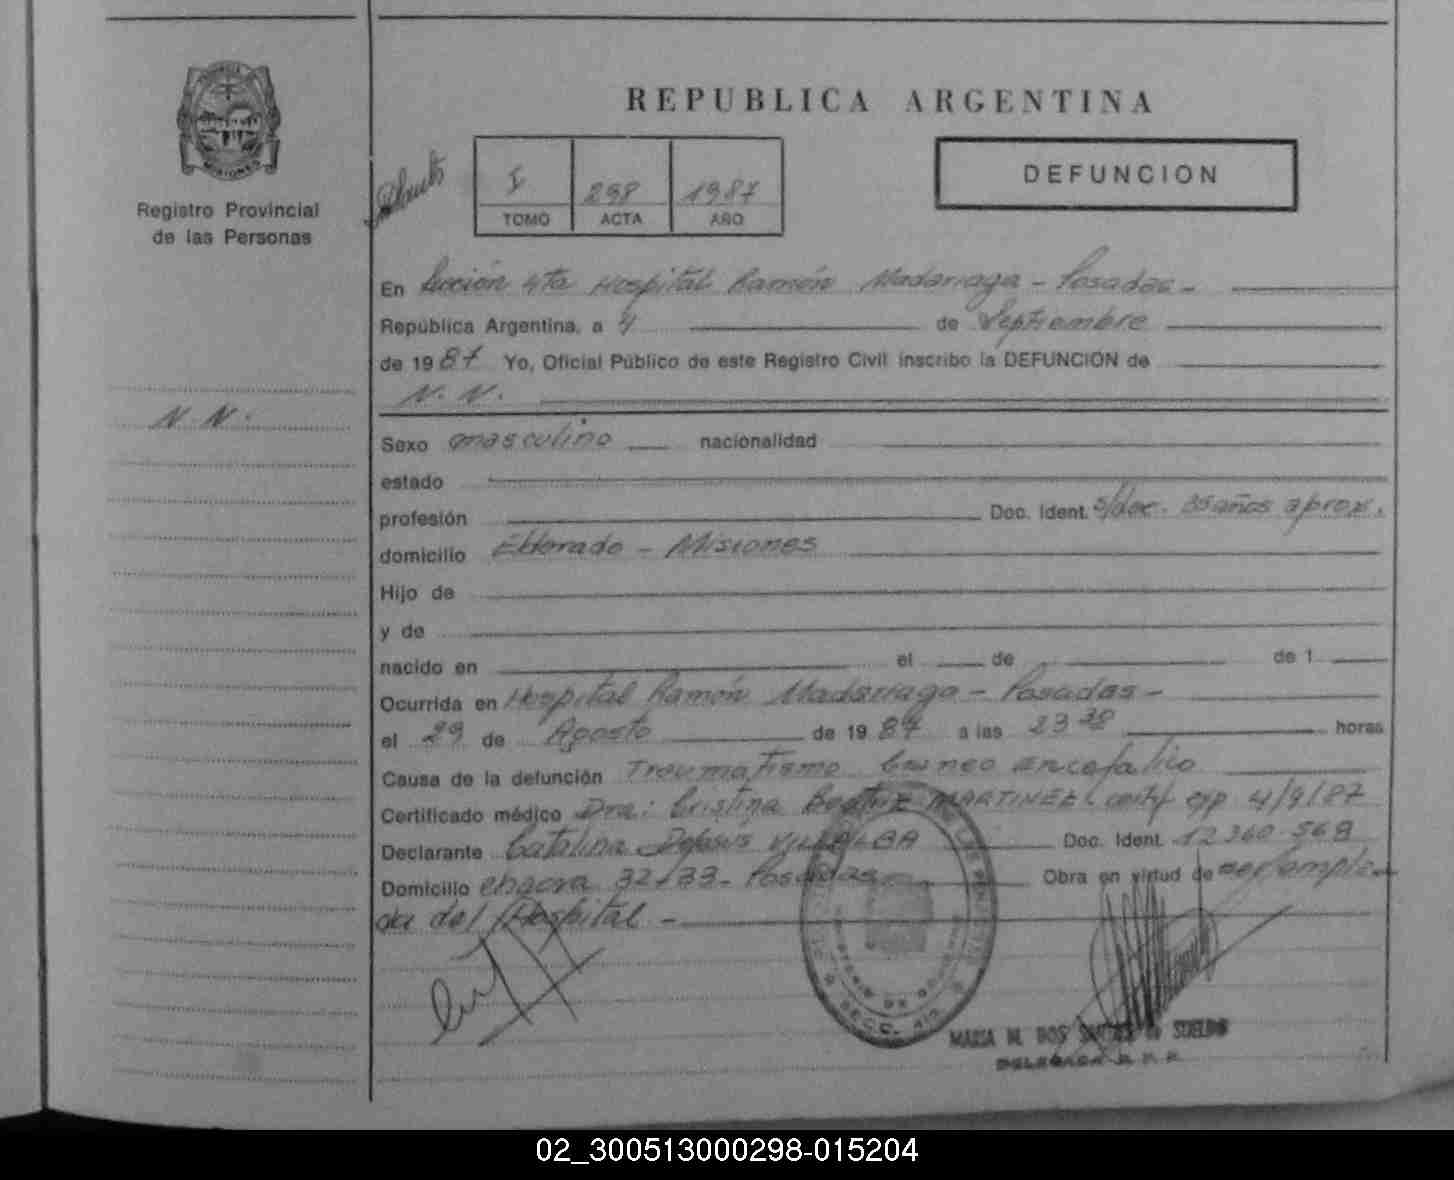 REPUBLICA ARGENTINA
DEFUNCION
MISIONES
Registro Provincial
de las Personas
I 298 1987
TOMO ACTA AÑO
En Sección 4ta Hospital Ramón Madariaga - Posadas -
República Argentina, a 4 de Septiembre
de 1987 Yo, Oficial Público de este Registro Civil inscribo la DEFUNCION de
N. N.
N. N.
Sexo masculino nacionalidad
estado
profesión Doc. Ident. s/doc. 35 años aprox.
domicilio Eldorado - Misiones
Hijo de
y de
nacido en el de de 1
Ocurrida en Hospital Ramón Madariaga - Posadas -
el 29 de Agosto de 1987 a las 23 30 horas
Causa de la defunción Traumatismo Craneo encefalico
Certificado médico Dra: Cristina Beatriz MARTINEZ - certf exp 4/9/87
Declarante Catalina Dejesus VILLALBA Doc. Ident. 12 360 568
Domicilio chacra 32-33 - Posadas Obra en virtud de ser emplea
da del Hospital -
MARIA M. DOS SANTOS de SUELDO
DELEGADA R. P. P.
02_300513000298-015204